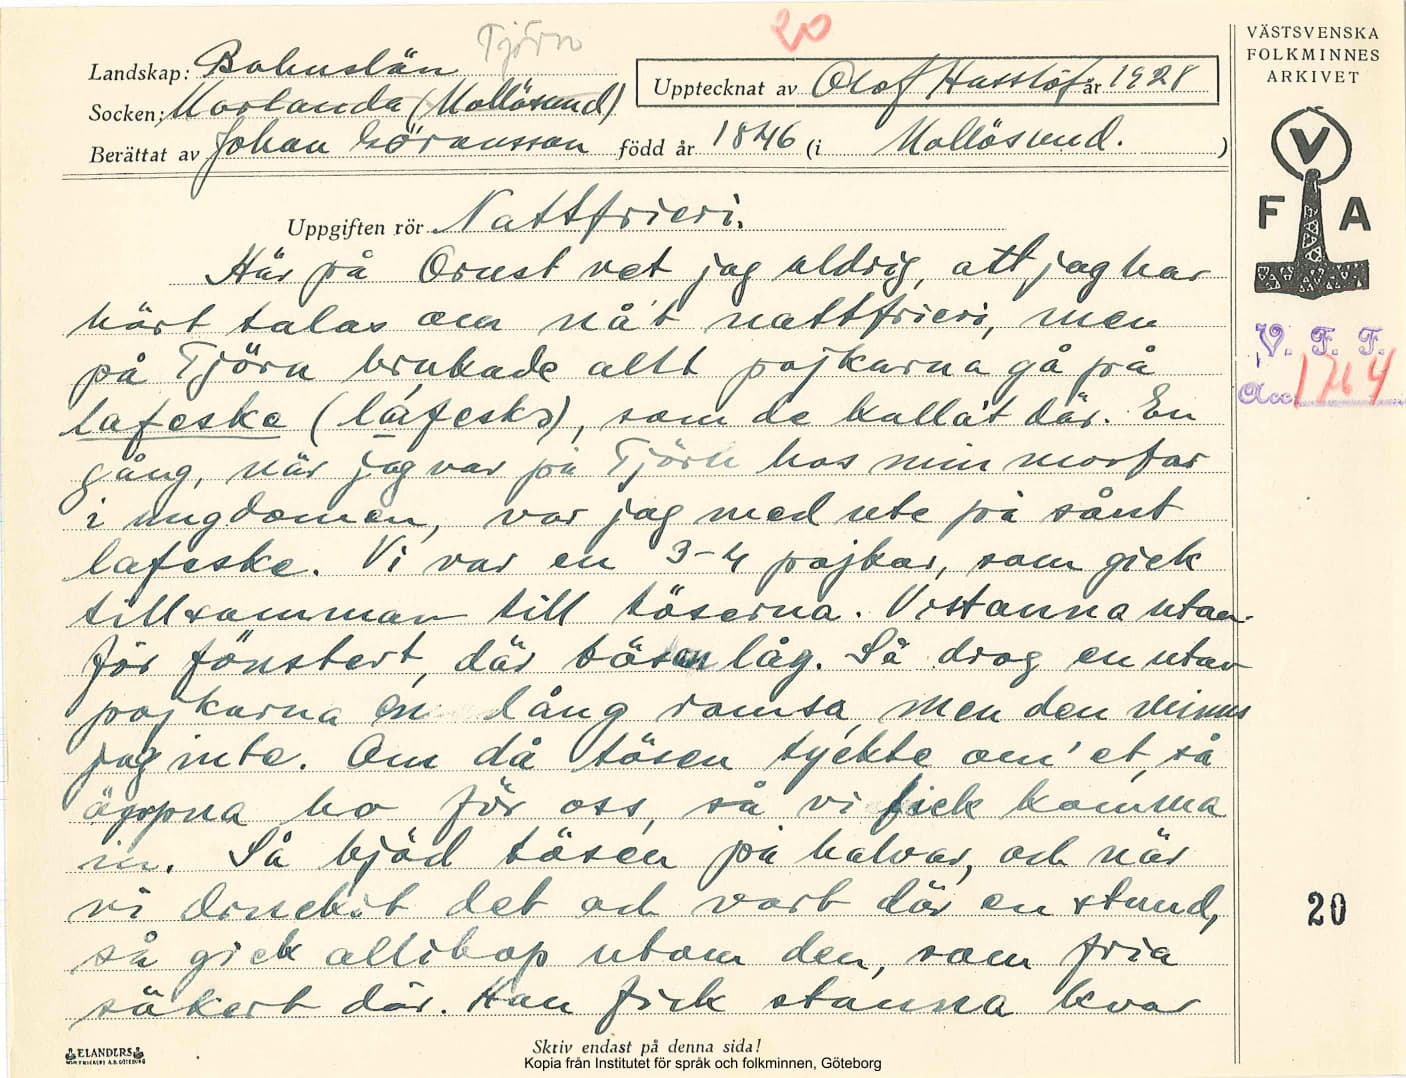 Tjörn
20
Landskap: Bohuslän
Socken: Morlanda (Mollösund)
Upptecknat av Olof Hasslöf år 1928
Berättat av Johan Göransson född år 1846 (i Mollösund. )
VÄSTSVENSKA
FOLKMINNES
ARKIVET
V
F A
V. F. F.
Acc. 1764
Uppgiften rör Nattfrieri.
Här på Orust vet jag aldrig, att jag har
hört talas om nå't nattfrieri, men
på Tjörn brukade allt pojkarna gå på
lafeske (láfeskə), som de kalla't där. En
gång, när jag var på Tjörn hos min morfar
i ungdomen, var jag med ute på sånt
lafeske. Vi var en 3-4 pojkar, som gick
tillsamman till töserna. Vi stanna utan-
för fönstert, där tösen låg. Så drog en utav
pojkarna en lång ramsa, men den minns
jag inte. Om då tösen tyckte om'et, så
äppna ho för oss, så vi fick komma
in. Så bjöd tösen på halvar, och när
vi druckit det och vart där en stund,
så gick allihop utom den, som fria
säkert där. Han fick stanna kvar
20
ELANDERS
Skriv endast på denna sida!
Kopia från Institutet för språk och folkminnen, Göteborg